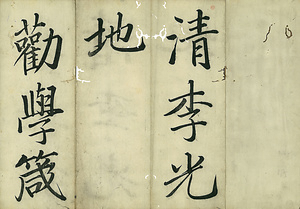 清李光
地
勸學箴